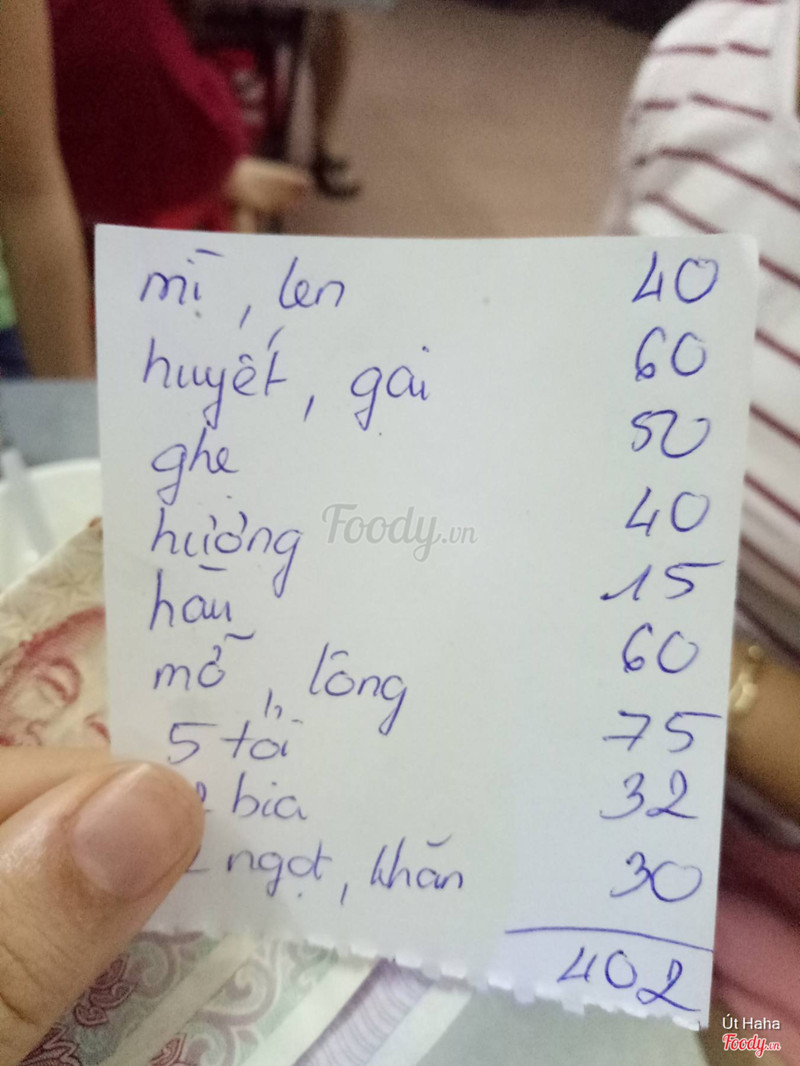 mì, len 40
huyết, gai 60
ghẹ 50
hương 40
hàu 15
mỡ, lông 60
5 tỏi 75
2 bia 32
2 ngọt, khăn 30
402
Foody.vn
Út Haha
Foody.vn